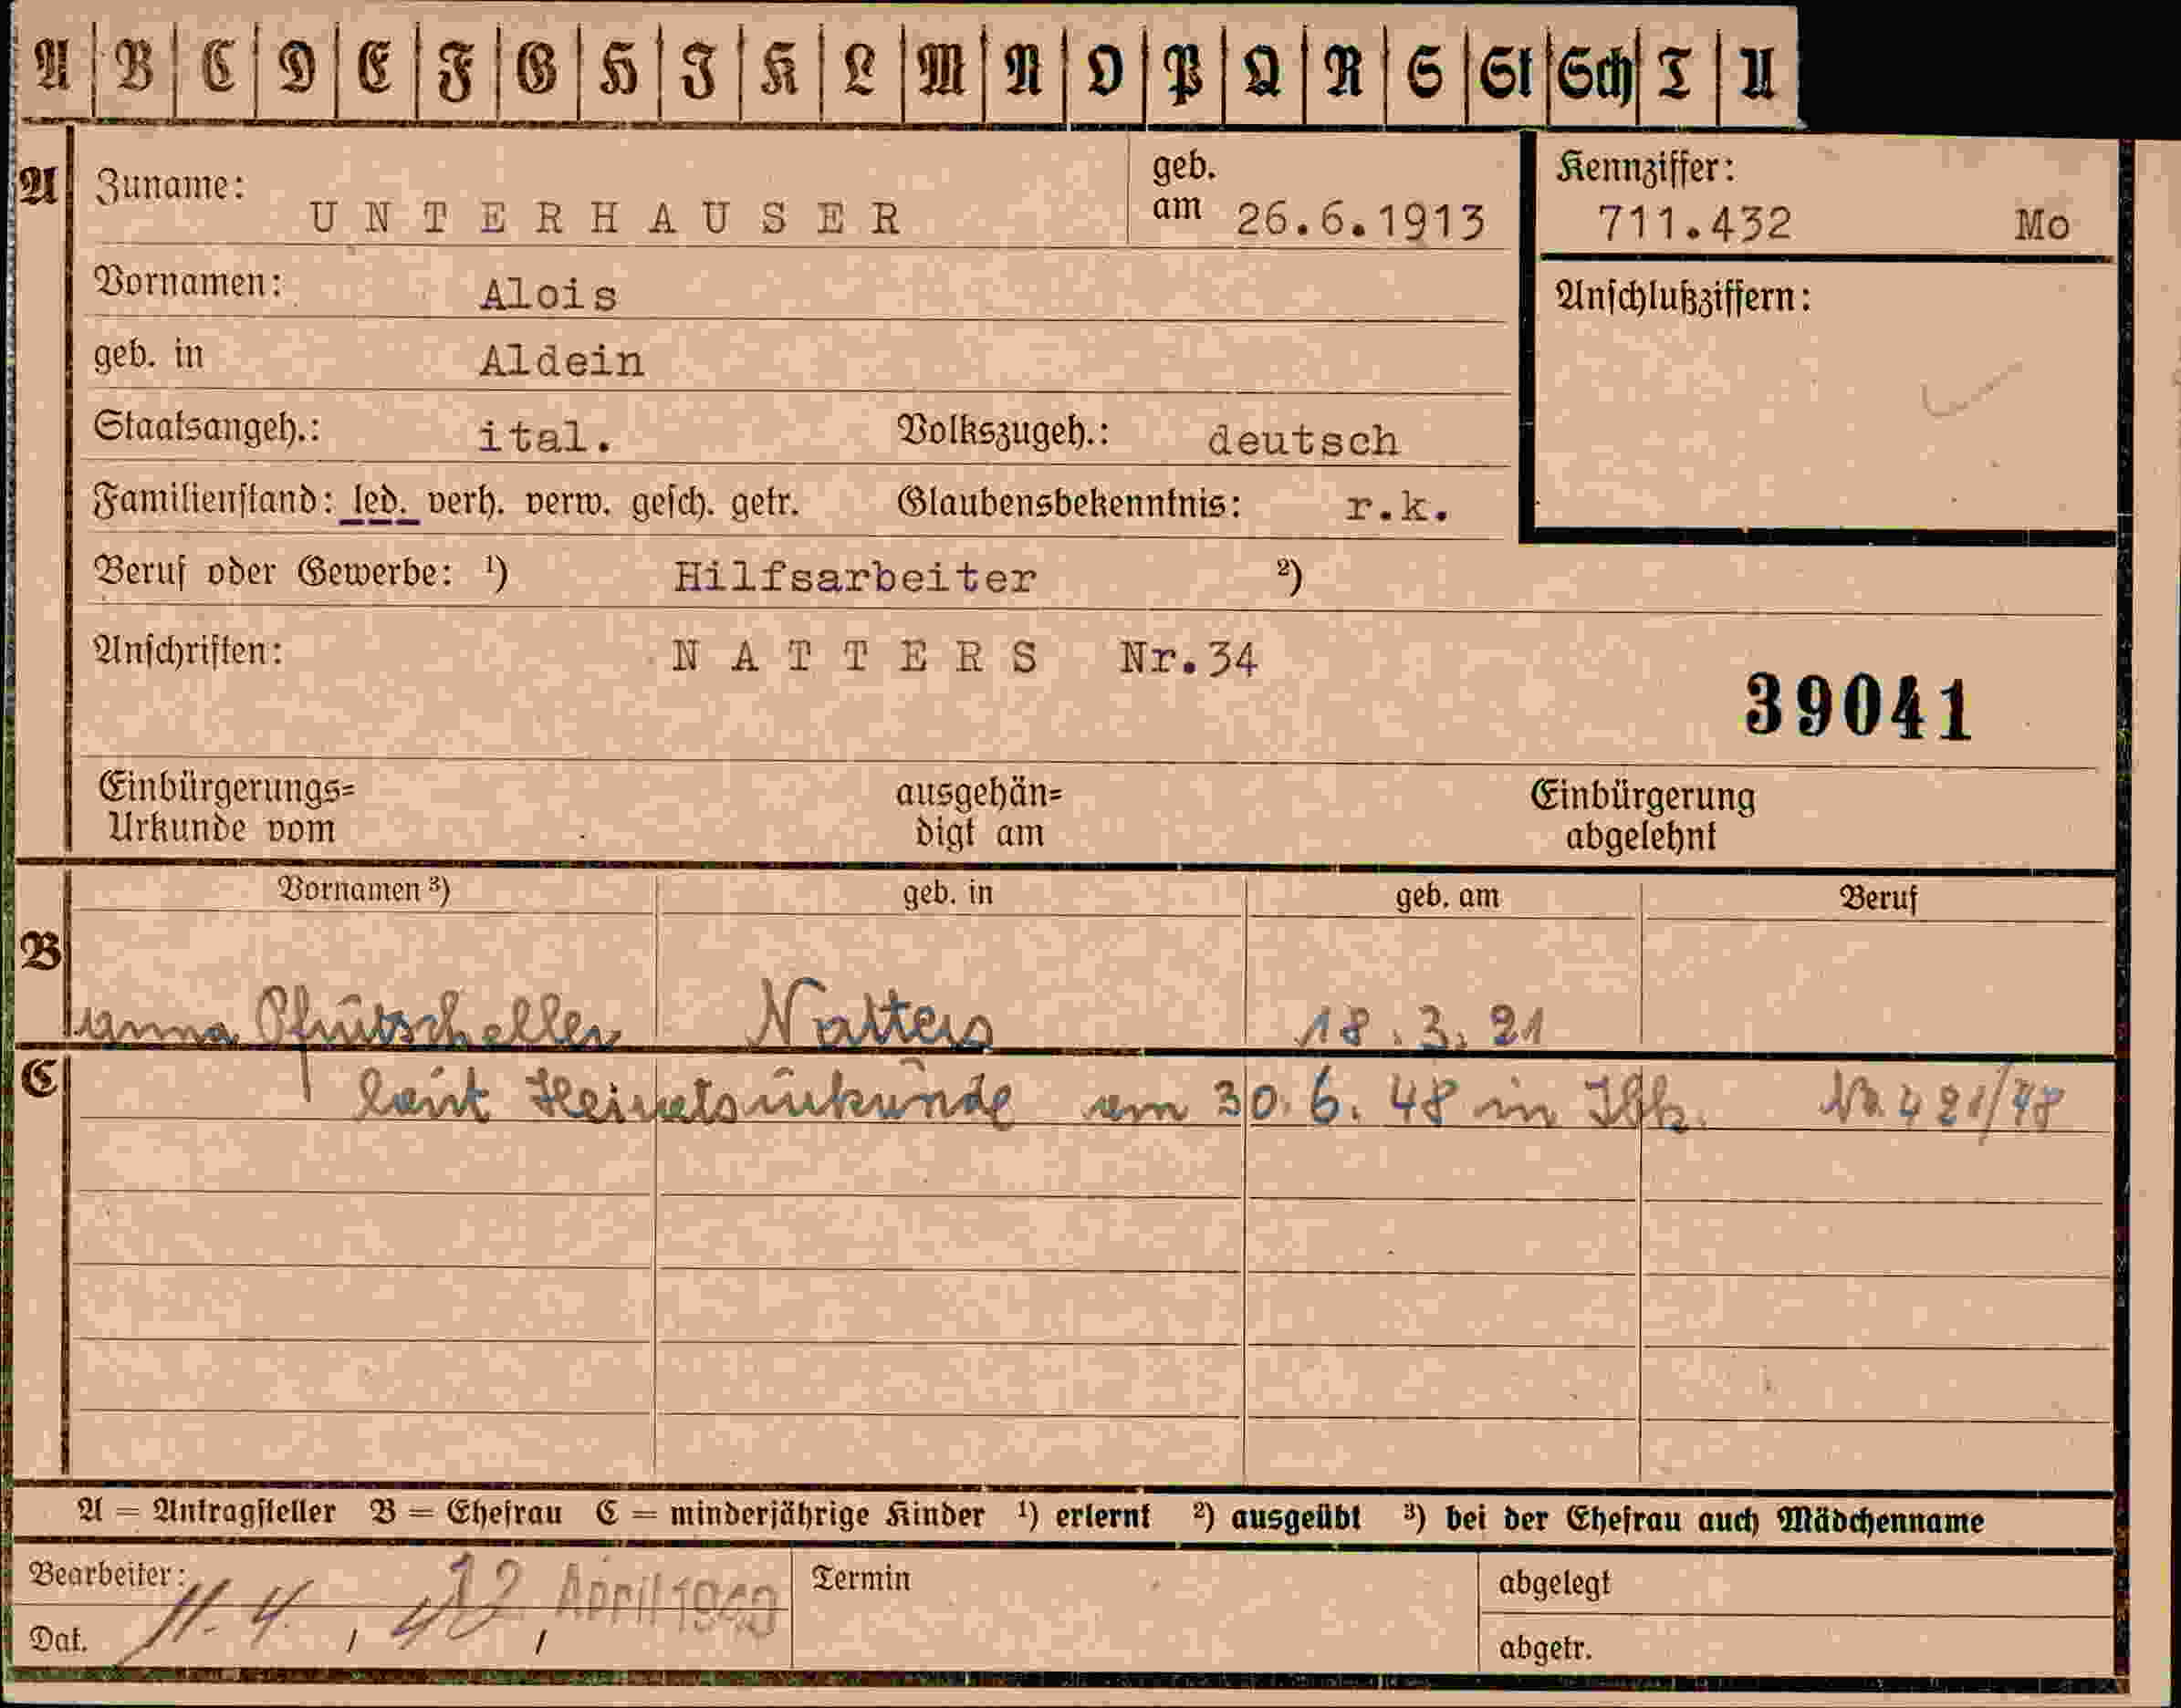 A B C D E F G H I K L M N O P Q R S St Sch T U
A Zuname: UNTERHAUSER geb. am 26.6.1913 Kennziffer: 711.432 Mo
Vornamen: Alois Anschlußziffern:
geb. in Aldein
Staatsangeh.: ital. Volkszugeh.: deutsch
Familienstand: led. verh. verw. gesch. getr. Glaubensbekenntnis: r.k.
Beruf oder Gewerbe: ¹) Hilfsarbeiter ²)
Anschriften: NATTERS Nr.34
39041
Einbürgerungs= ausgehän= Einbürgerung
Urkunde vom digt am abgelehnt
Vornamen ³) geb. in geb. am Beruf
B
Anna Pfurtscheller Natters 18.3.21
C laut Heiratsurkunde am 30.6.48 in Ibk. No. 421/48
A = Antragsteller B = Ehefrau C = minderjährige Kinder ¹) erlernt ²) ausgeübt ³) bei der Ehefrau auch Mädchenname
Bearbeiter: 12. April 1940 Termin abgelegt
Dat. 11. 4. 40 abgetr.